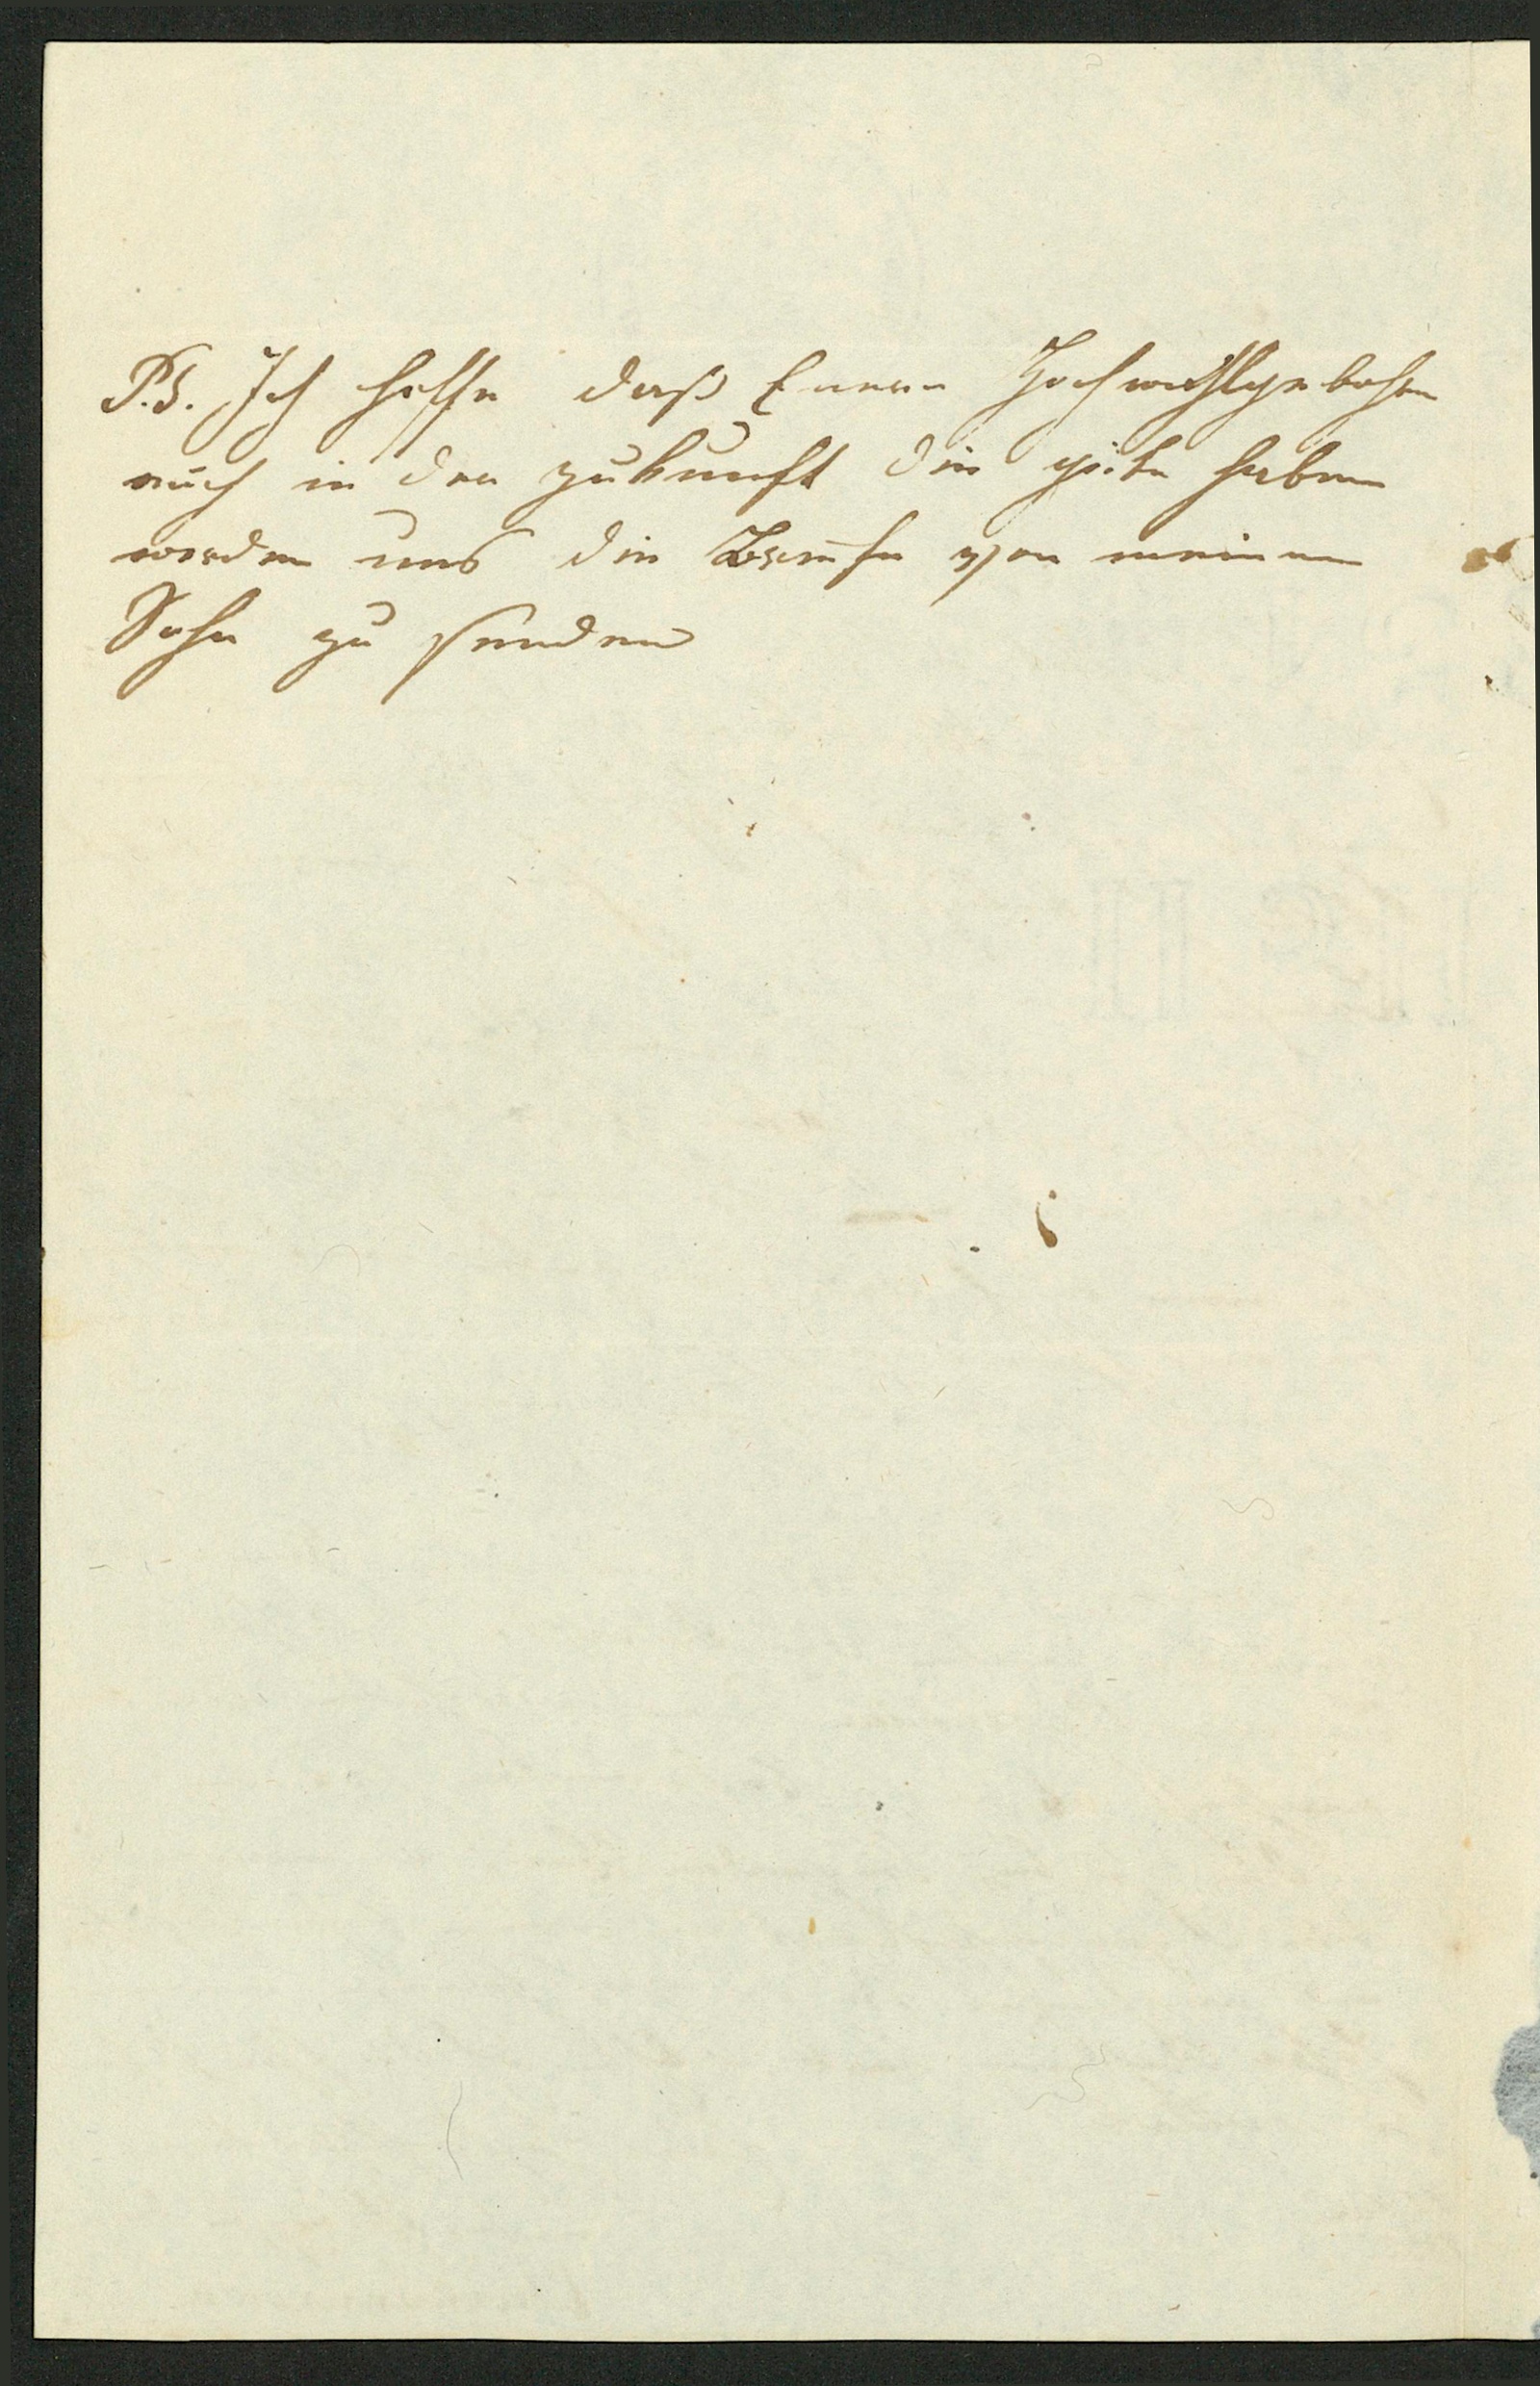 P.S. Ich hoffe daß Euern Hochwohlgebohrn
auch in der zukunft die güte haben
werden uns die Briefe von meinem
Sohn zu senden